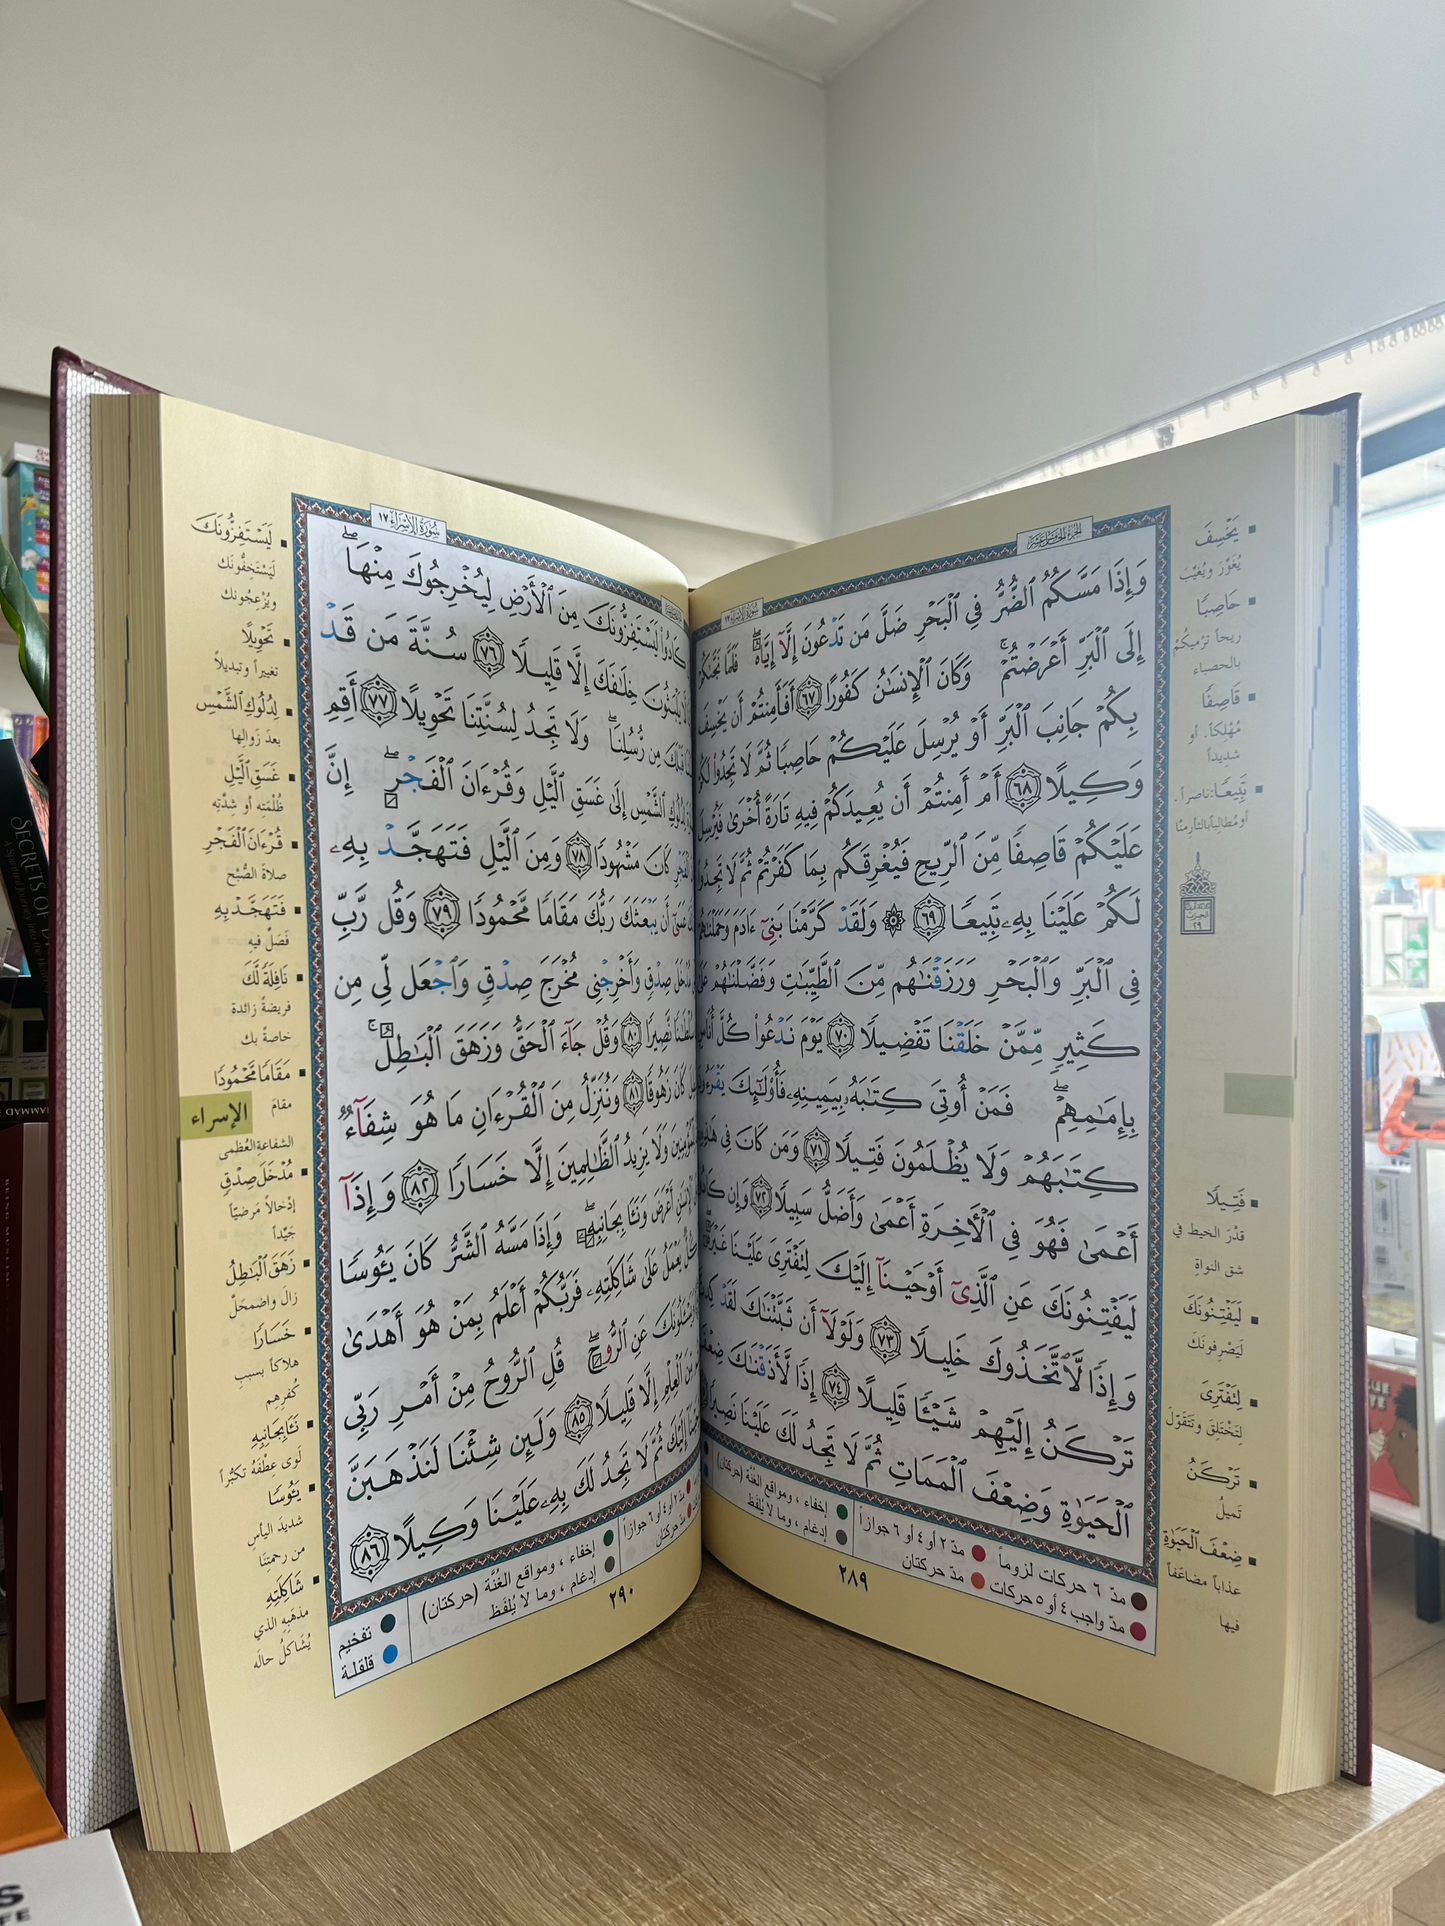 الجزء الخامس عشر
سورة الإسراء ١٧
وَإِذَا مَسَّكُمُ ٱلضُّرُّ فِي ٱلْبَحْرِ ضَلَّ مَن تَدْعُونَ إِلَّآ إِيَّاهُ ۖ فَلَمَّا نَجَّىٰكُمْ
إِلَى ٱلْبَرِّ أَعْرَضْتُمْ ۚ وَكَانَ ٱلْإِنسَٰنُ كَفُورًا ٦٧ أَفَأَمِنتُمْ أَن يَخْسِفَ
بِكُمْ جَانِبَ ٱلْبَرِّ أَوْ يُرْسِلَ عَلَيْكُمْ حَاصِبًا ثُمَّ لَا تَجِدُوا۟ لَكُمْ
وَكِيلًا ٦٨ أَمْ أَمِنتُمْ أَن يُعِيدَكُمْ فِيهِ تَارَةً أُخْرَىٰ فَيُرْسِلَ
عَلَيْكُمْ قَاصِفًا مِّنَ ٱلرِّيحِ فَيُغْرِقَكُم بِمَا كَفَرْتُمْ ثُمَّ لَا تَجِدُوا۟
لَكُمْ عَلَيْنَا بِهِۦ تَبِيعًا ٦٩ ۞ وَلَقَدْ كَرَّمْنَا بَنِىٓ ءَادَمَ وَحَمَلْنَٰهُمْ
فِي ٱلْبَرِّ وَٱلْبَحْرِ وَرَزَقْنَٰهُم مِّنَ ٱلطَّيِّبَٰتِ وَفَضَّلْنَٰهُمْ
كَثِيرٍ مِّمَّنْ خَلَقْنَا تَفْضِيلًا ٧٠ يَوْمَ نَدْعُوا۟ كُلَّ أُنَاسٍ
بِإِمَٰمِهِمْ ۖ فَمَنْ أُوتِيَ كِتَٰبَهُۥ بِيَمِينِهِۦ فَأُو۟لَٰٓئِكَ يَقْرَءُونَ
كِتَٰبَهُمْ وَلَا يُظْلَمُونَ فَتِيلًا ٧١ وَمَن كَانَ فِي هَٰذِهِۦٓ
أَعْمَىٰ فَهُوَ فِي ٱلْأَخِرَةِ أَعْمَىٰ وَأَضَلُّ سَبِيلًا ٧٢ وَإِن كَادُوا۟
لَيَفْتِنُونَكَ عَنِ ٱلَّذِىٓ أَوْحَيْنَآ إِلَيْكَ لِتَفْتَرِيَ عَلَيْنَا غَيْرَهُۥ ۖ
وَإِذًا لَّٱتَّخَذُوكَ خَلِيلًا ٧٣ وَلَوْلَآ أَن ثَبَّتْنَٰكَ لَقَدْ كِدتَّ
تَرْكَنُ إِلَيْهِمْ شَيْـًٔا قَلِيلًا ٧٤ إِذًا لَّأَذَقْنَٰكَ ضِعْفَ
ٱلْحَيَوٰةِ وَضِعْفَ ٱلْمَمَاتِ ثُمَّ لَا تَجِدُ لَكَ عَلَيْنَا نَصِيرًا
مدّ ٦ حركات لزوماً
مدّ ٢ أو ٤ أو ٦ جوازاً
مدّ واجب ٤ أو ٥ حركات
مدّ حركتان
إخفاء ، ومواقع الغُنَّة (حركتان)
إدغام ، وما لا يُلفَظ
٢٨٩
يَخْسِفَ
يُغَوِّرَ ويُغَيِّبَ
حَاصِبًا
ريحاً ترْميكُمْ
بالحصباء
قَاصِفًا
مُهْلكاً، أو
شديداً
تَبِيعًا: ناصراً،
أو مُطالباً بالثأر منّا
الحزب
٢٩
فَتِيلًا
قَدْرَ الخيط في
شق النواة
لَيَفْتِنُونَكَ
لَيَصْرِفونَكَ
لِتَفْتَرِيَ
لِتَخْتَلِقَ وتَتَقَوَّلَ
تَرْكَنُ
تَميلُ
ضِعْفَ ٱلْحَيَوٰةِ
عذاباً مضاعَفاً
فيها
سورة الإسراء ١٧
كَادُوا۟ لَيَسْتَفِزُّونَكَ مِنَ ٱلْأَرْضِ لِيُخْرِجُوكَ مِنْهَا ۖ
يَلْبَثُونَ خِلَٰفَكَ إِلَّا قَلِيلًا ٧٦ سُنَّةَ مَن قَدْ
قَبْلَكَ مِن رُّسُلِنَا ۖ وَلَا تَجِدُ لِسُنَّتِنَا تَحْوِيلًا ٧٧ أَقِمِ
لِدُلُوكِ ٱلشَّمْسِ إِلَىٰ غَسَقِ ٱلَّيْلِ وَقُرْءَانَ ٱلْفَجْرِ ۖ إِنَّ
ٱلْفَجْرِ كَانَ مَشْهُودًا ٧٨ وَمِنَ ٱلَّيْلِ فَتَهَجَّدْ بِهِۦ
عَسَىٰٓ أَن يَبْعَثَكَ رَبُّكَ مَقَامًا مَّحْمُودًا ٧٩ وَقُل رَّبِّ
مُدْخَلَ صِدْقٍ وَأَخْرِجْنِي مُخْرَجَ صِدْقٍ وَٱجْعَل لِّي مِن
سُلْطَٰنًا نَّصِيرًا ٨٠ وَقُلْ جَآءَ ٱلْحَقُّ وَزَهَقَ ٱلْبَٰطِلُ ۚ
كَانَ زَهُوقًا ٨١ وَنُنَزِّلُ مِنَ ٱلْقُرْءَانِ مَا هُوَ شِفَآءٌ
لِّلْمُؤْمِنِينَ وَلَا يَزِيدُ ٱلظَّٰلِمِينَ إِلَّا خَسَارًا ٨٢ وَإِذَآ
ٱلْإِنسَٰنِ أَعْرَضَ وَنَـَٔا بِجَانِبِهِۦ ۖ وَإِذَا مَسَّهُ ٱلشَّرُّ كَانَ يَـُٔوسًا
كُلٌّ يَعْمَلُ عَلَىٰ شَاكِلَتِهِۦ فَرَبُّكُمْ أَعْلَمُ بِمَنْ هُوَ أَهْدَىٰ
وَيَسْـَٔلُونَكَ عَنِ ٱلرُّوحِ ۖ قُلِ ٱلرُّوحُ مِنْ أَمْرِ رَبِّي
مِّنَ ٱلْعِلْمِ إِلَّا قَلِيلًا ٨٥ وَلَئِن شِئْنَا لَنَذْهَبَنَّ
إِلَيْكَ ثُمَّ لَا تَجِدُ لَكَ بِهِۦ عَلَيْنَا وَكِيلًا ٨٦
مدّ ٢ أو ٤ أو ٦ جوازاً
مدّ حركتان
إخفاء ، ومواقع الغُنَّة (حركتان)
إدغام ، وما لا يُلفَظ
تفخيم
قلقلة
٢٩٠
لَيَسْتَفِزُّونَكَ
لَيَسْتَخِفُّونَك
ويُزْعِجُونك
تَحْوِيلًا
تغييراً وتبديلاً
لِدُلُوكِ ٱلشَّمْسِ
بعدَ زَوالِها
غَسَقِ ٱلَّيْلِ
ظُلْمَتِه أو شِدَّتِه
قُرْءَانَ ٱلْفَجْرِ
صلاةَ الصُّبْح
فَتَهَجَّدْ بِهِ
فَصَلِّ فيهِ
نَافِلَةً لَّكَ
فريضةً زائدة
خاصةً بك
مَقَامًا مَّحْمُودًا
مقامَ
الشفاعةِ العُظمى
الإسراء
مُدْخَلَ صِدْقٍ
إدْخالاً مَرضيّاً
جَيِّداً
زَهَقَ ٱلْبَٰطِلُ
زالَ واضمحلَّ
خَسَارًا
هلاكاً بسببِ
كُفرِهِم
نَـَٔا بِجَانِبِهِ
لَوى عِطْفَهُ تكبُّراً
يَـُٔوسًا
شديدَ اليأسِ
من رحمتِنَا
شَاكِلَتِهِ
مذهَبِهِ الذي
يُشَاكلُ حالَه
SECRETS OF